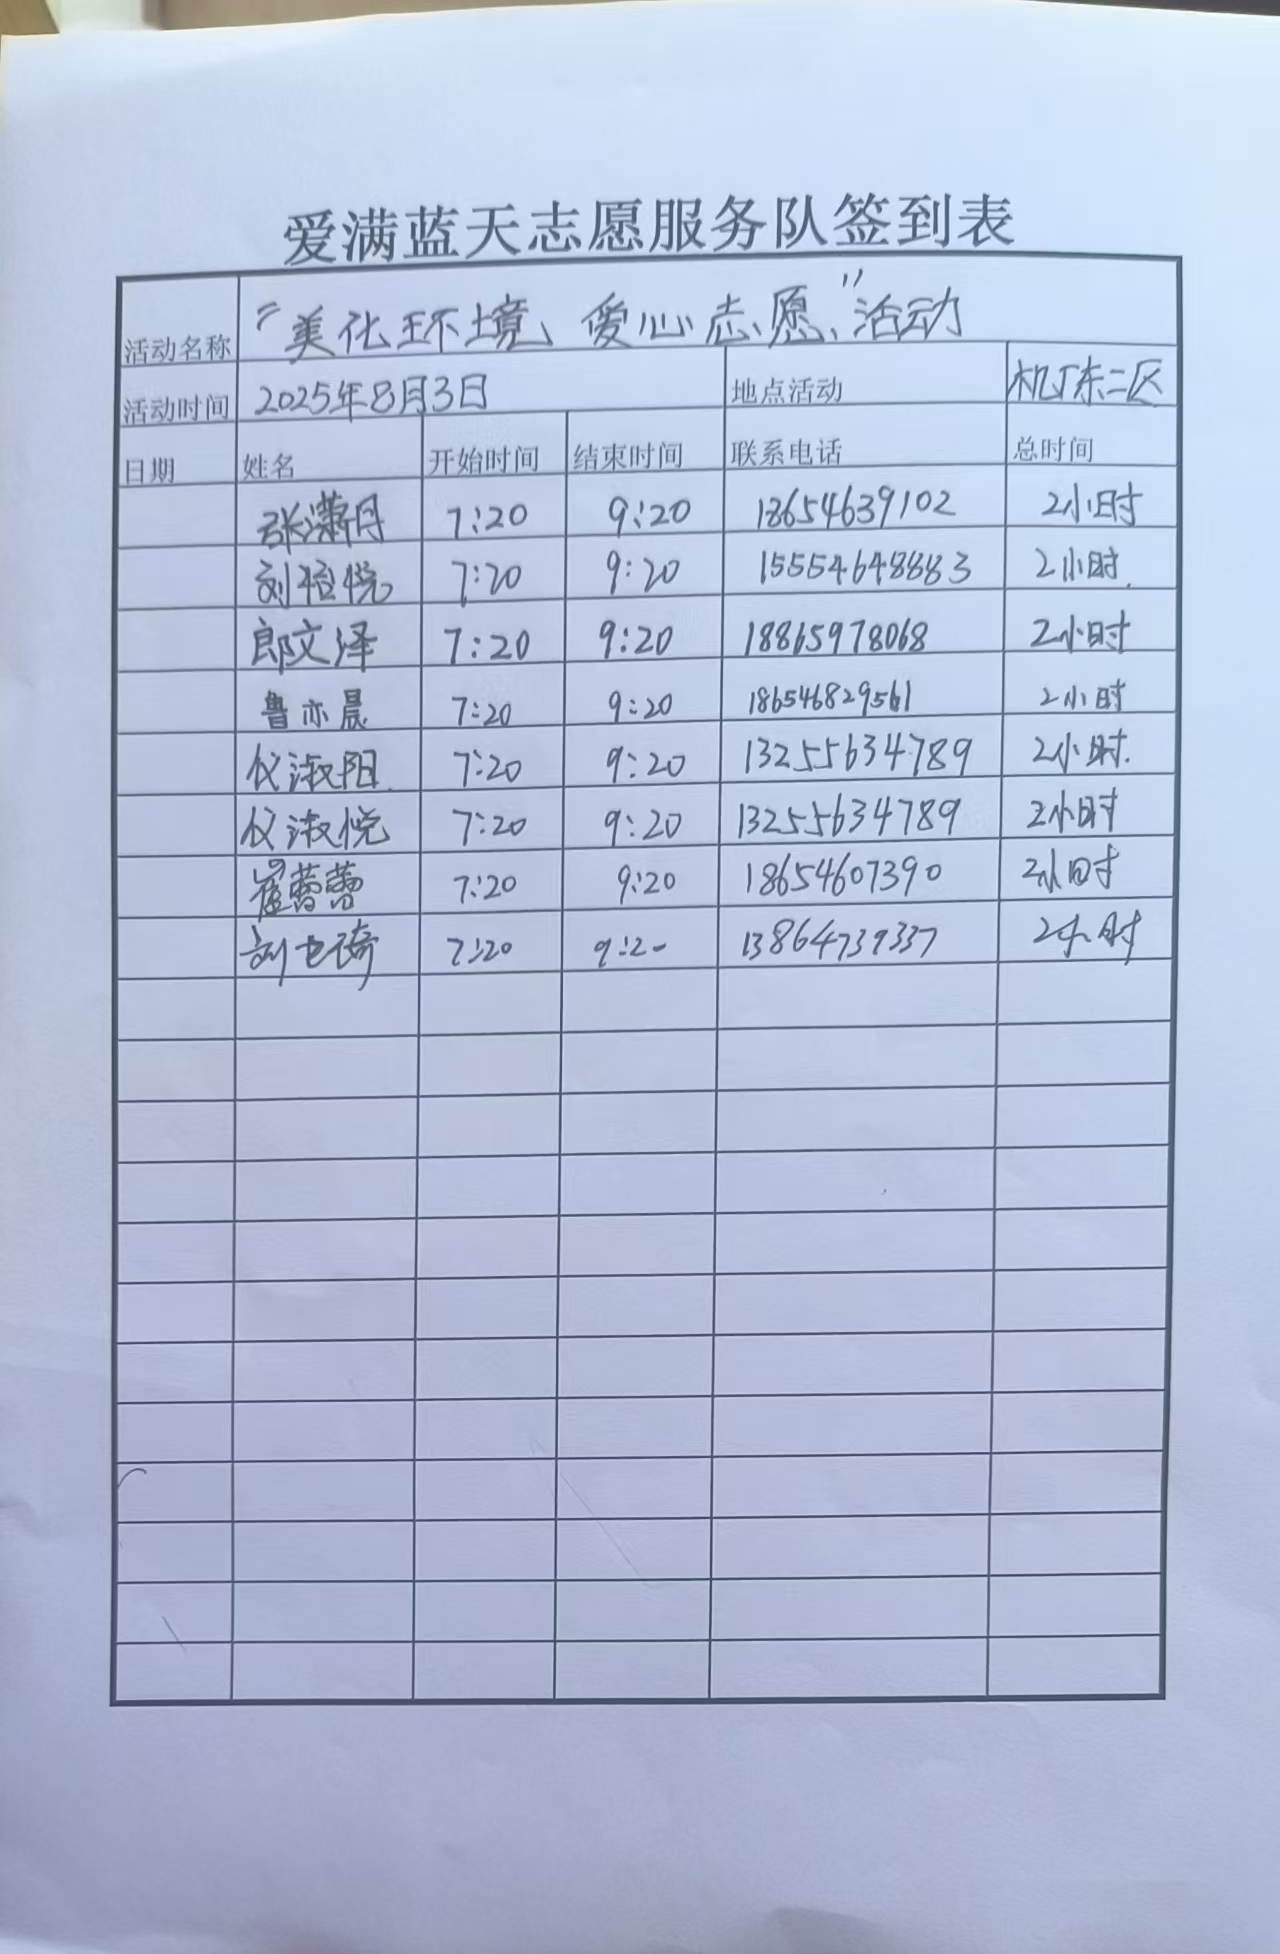 爱满蓝天志愿服务队签到表
活动名称 “美化环境、爱心志愿”活动
活动时间 2025年8月3日 地点活动 机厂东二区
日期 姓名 开始时间 结束时间 联系电话 总时间
张潇月 7:20 9:20 18654639102 2小时
刘恺悦 7:20 9:20 15554648883 2小时.
郎文泽 7:20 9:20 18865978068 2小时
鲁亦晨 7:20 9:20 186546829561 2小时
仪淑阳. 7:20 9:20 13255634789 2小时.
仪淑悦 7:20 9:20 13255634789 2小时
崔蕾蕾 7:20 9:20 18654607390 2小时
刘 7:20 9:20 13864739337 2小时